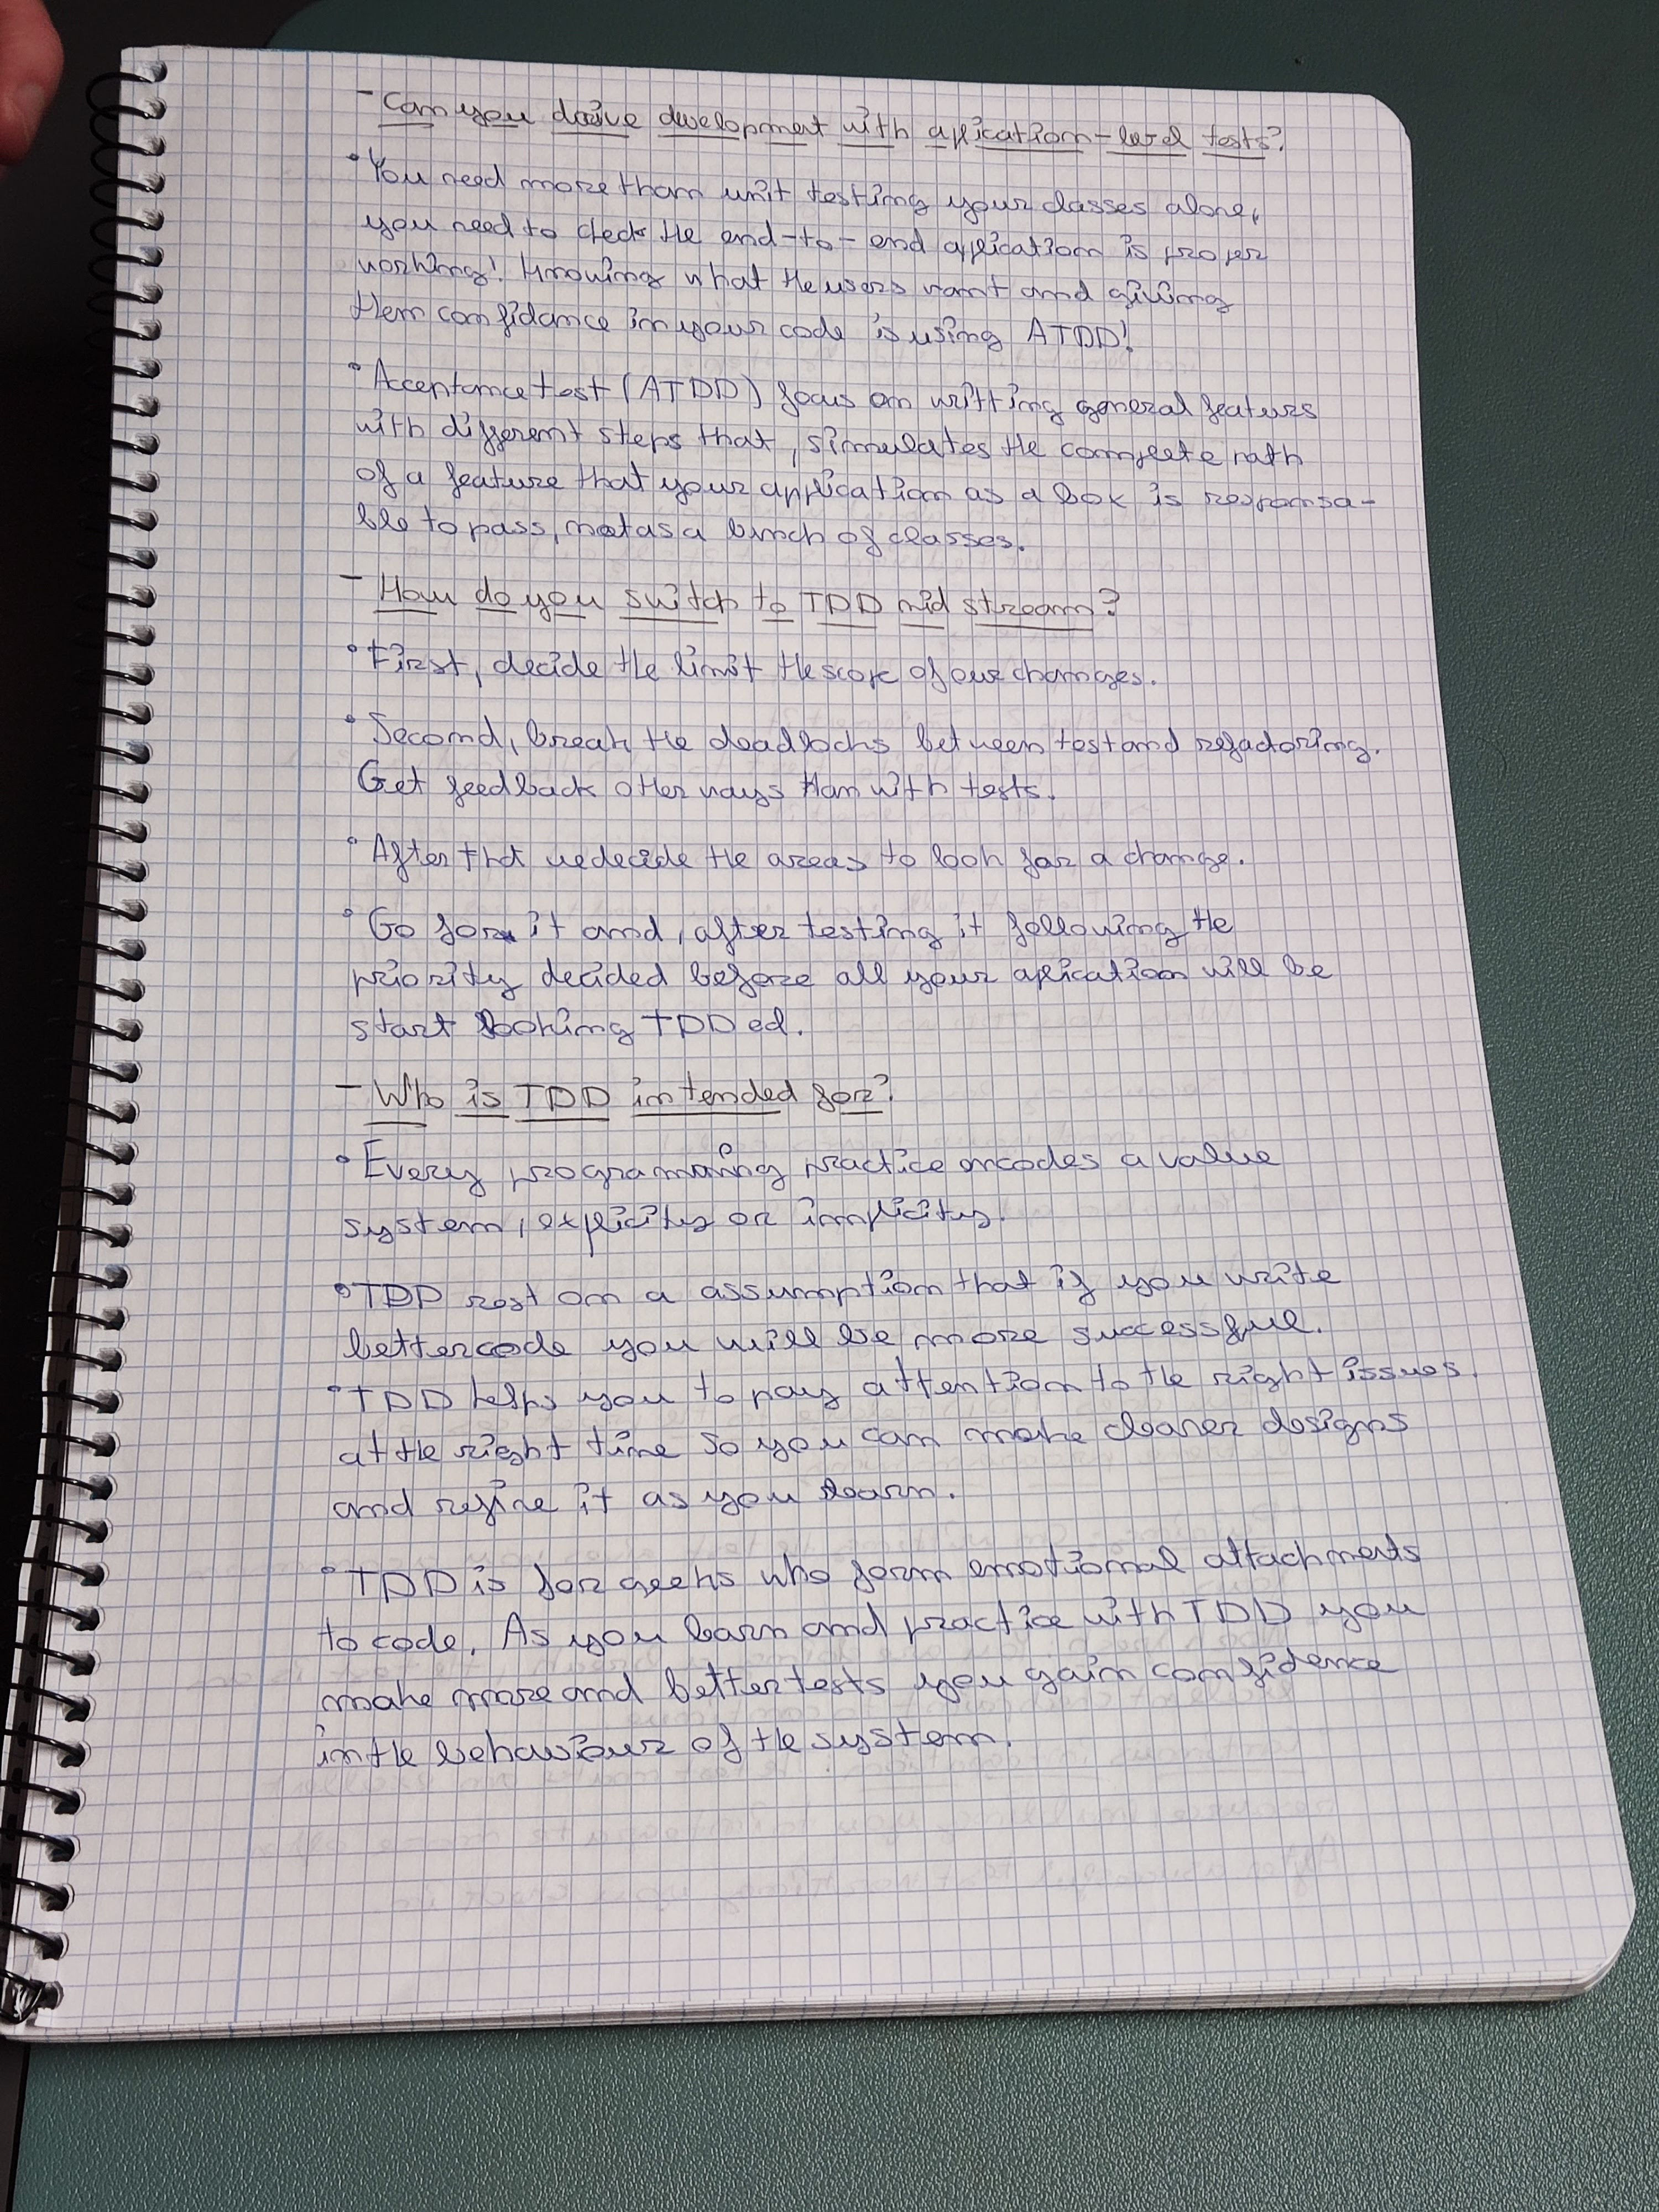 - Can you drive development with aplication-level tests?
• You need more than unit testing your classes alone,
you need to check the end-to-end aplication is proper
working! Knowing what the users want and giving
them confidance in your code is using ATDD!
• Acceptance test (ATDD) focus on writting general featurs
with different steps that, simulates the complete path
of a feature that your application as a box is responsa-
ble to pass, not as a bunch of classes.
- How do you switch to TDD mid stream?
• First, decide the limit the scope of our changes.
• Second, break the deadlocks between test and refactoring.
Get feedback other ways than with tests.
• After that we decide the areas to look for a change.
• Go for it and, after testing it following the
priority decided before all your aplication will be
start looking TDD ed.
- Who is TDD intended for?
• Every programming practice encodes a value
system, explicity or implicity.
• TDD rest on a assumption that if you write
better code you will be more successful.
• TDD helps you to pay attention to the right issues
at the right time so you can make cleaner designs
and refine it as you learn.
• TDD is for geeks who form emotional attachments
to code. As you learn and practice with TDD you
make more and better tests you gain confidence
in the behaviour of the system.